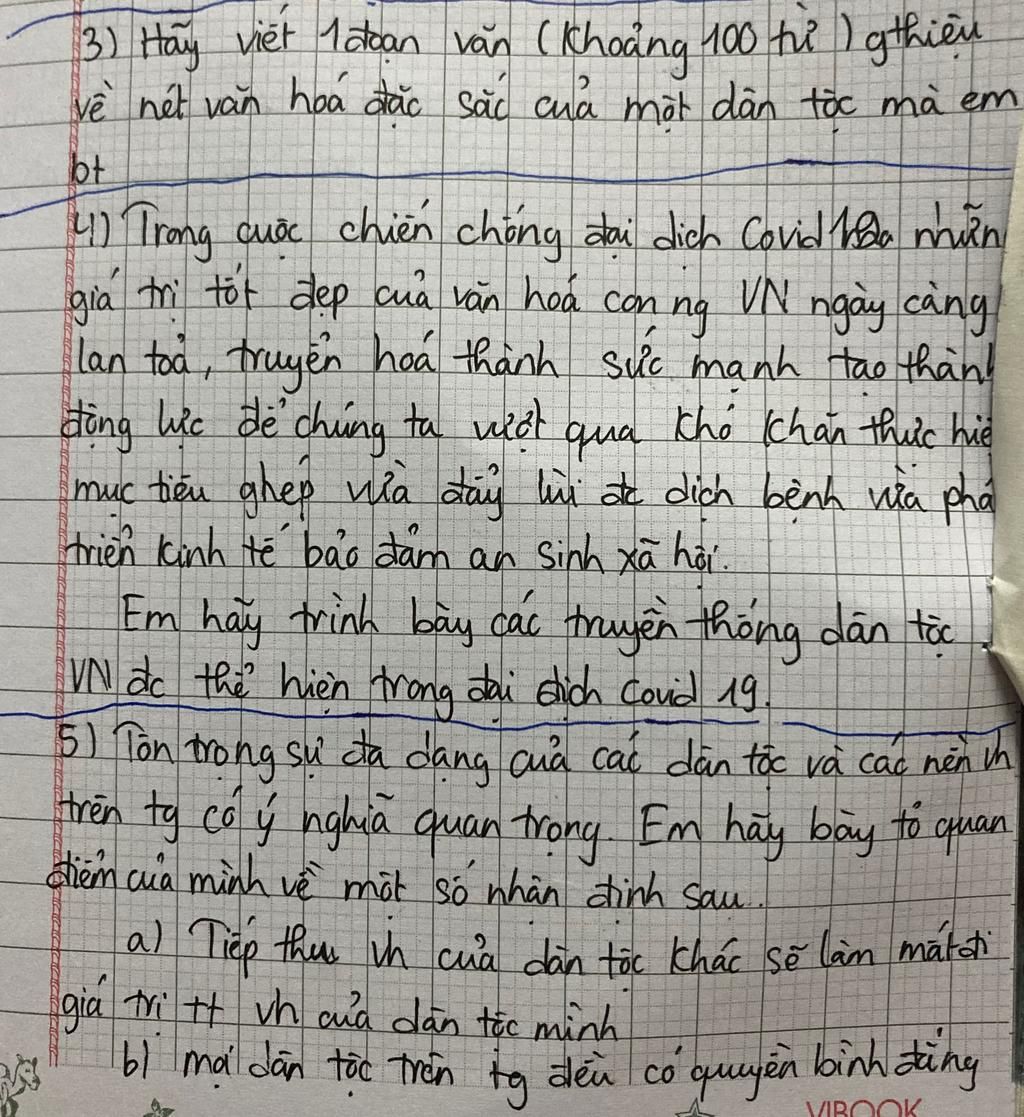 3) Hãy viết 1 đoạn văn (Khoảng 100 từ) gthiệu
về nét văn hoá đặc sắc của một dân tộc mà em
bt
4) Trong cuộc chiến chống đại dịch Covid
giá trị tốt đẹp của văn hoá con ng VN ngày càng
lan toả, truyền hoá thành sức mạnh tạo thành
động lực để chúng ta vượt qua khó khăn thực hiệ
mục tiêu ghép vừa đẩy lùi dịch bệnh vừa phá
triển kinh tế bảo đảm an sinh xã hội.
Em hãy trình bày các truyền thống dân tộc
VN đc thể hiện trong đại dịch Covid 19.
5) Tôn trọng sự đa dạng của các dân tộc và các nền vh
trên tg có ý nghĩa quan trọng. Em hãy bày tỏ quan
điểm của mình về một số nhận định sau.
a) Tiếp thu vh của dân tộc khác sẽ làm mất đi
giá trị tt vh của dân tộc mình
b) mọi dân tộc trên tg đều có quyền bình đẳng
VIBOOK